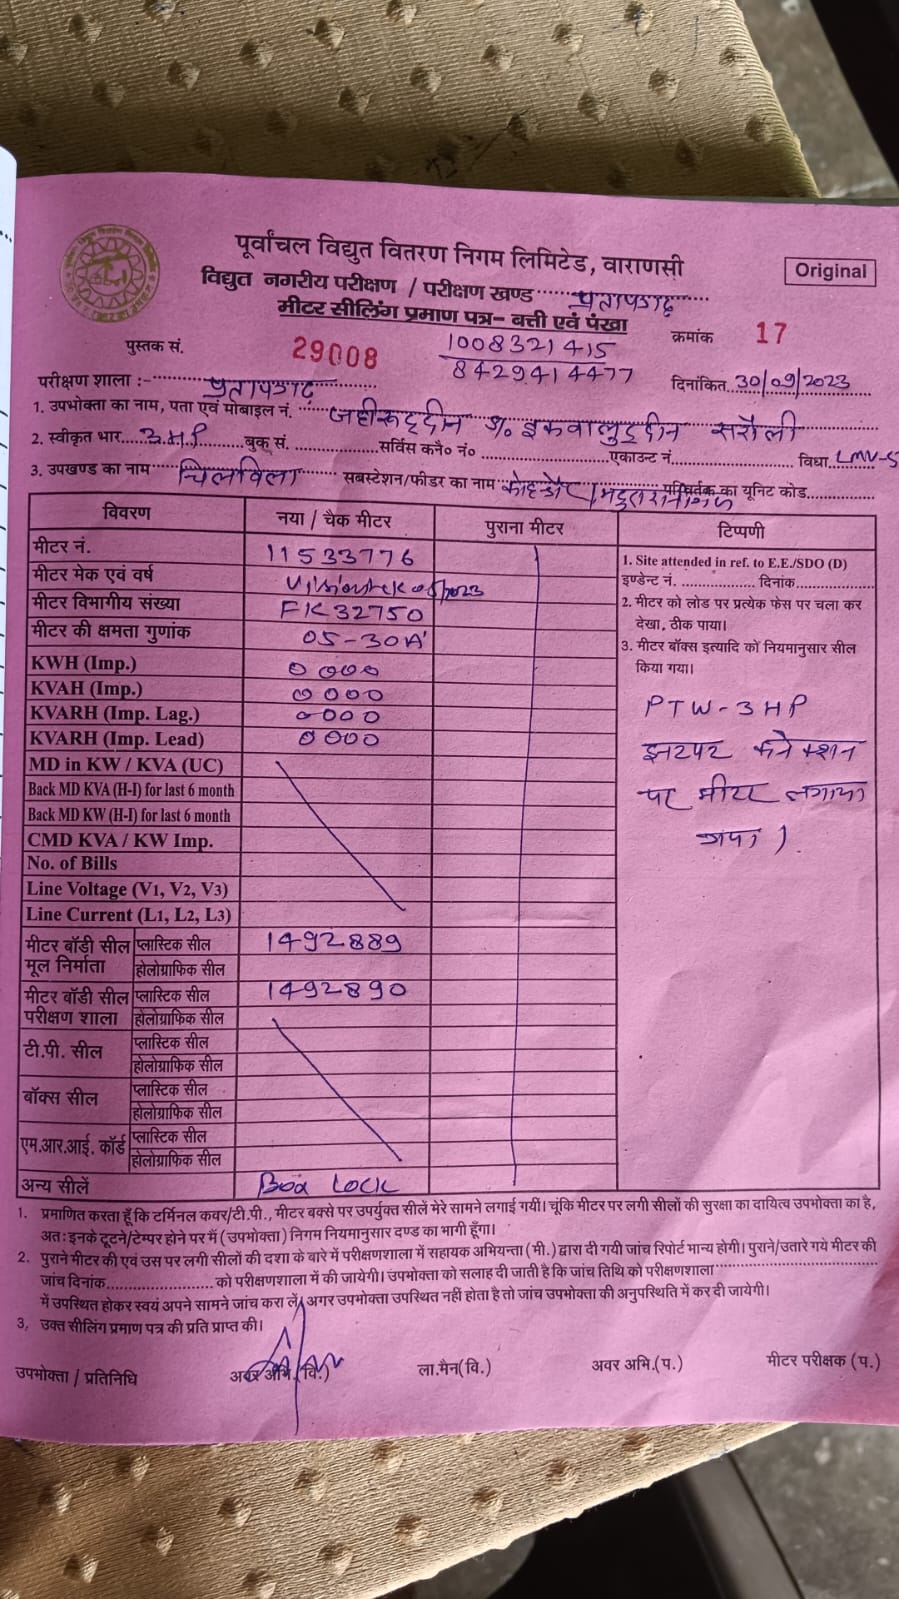 पूर्वांचल विद्युत वितरण निगम लिमिटेड, वाराणसी
Original
विद्युत नगरीय परीक्षण / परीक्षण खण्ड प्रतापगढ़
मीटर सीलिंग प्रमाण पत्र- बत्ती एवं पंखा
क्रमांक 17
पुस्तक सं. 29008
1008321415
8429414477
परीक्षण शाला :- प्रतापगढ़
दिनांकित 30/09/2023
1. उपभोक्ता का नाम, पता एवं मोबाइल नं. जहीरूद्दीन S/o इकबालुद्दीन सरौली
2. स्वीकृत भार 3HP बुक सं. सर्विस कनै० नं० एकाउन्ट नं. विधा LMV-5
3. उपखण्ड का नाम चिलबिला सबस्टेशन/फीडर का नाम परिवर्तक का यूनिट कोड
विवरण नया / चैक मीटर पुराना मीटर टिप्पणी
मीटर नं. 11533776
मीटर मेक एवं वर्ष
मीटर विभागीय संख्या FK32750
मीटर की क्षमता गुणांक 05-30A
KWH (Imp.) 0000
KVAH (Imp.) 0000
KVARH (Imp. Lag.) 0000
KVARH (Imp. Lead) 0000
MD in KW / KVA (UC)
Back MD KVA (H-I) for last 6 month
Back MD KW (H-I) for last 6 month
CMD KVA / KW Imp.
No. of Bills
Line Voltage (V1, V2, V3)
Line Current (L1, L2, L3)
मीटर बॉडी सील प्लास्टिक सील 1492889
मूल निर्माता होलोग्राफिक सील
मीटर बॉडी सील प्लास्टिक सील 1492890
परीक्षण शाला होलोग्राफिक सील
टी.पी. सील प्लास्टिक सील
होलोग्राफिक सील
बॉक्स सील प्लास्टिक सील
होलोग्राफिक सील
एम.आर.आई. कॉर्ड प्लास्टिक सील
होलोग्राफिक सील
अन्य सीलें Box Lock
1. Site attended in ref. to E.E./SDO (D)
इण्डेन्ट नं. दिनांक
2. मीटर को लोड पर प्रत्येक फेस पर चला कर
देखा, ठीक पाया।
3. मीटर बॉक्स इत्यादि कों नियमानुसार सील
किया गया।
PTW-3HP
झटपट कनेक्शन
पर मीटर लगाया
गया।
1. प्रमाणित करता हूँ कि टर्मिनल कवर/टी.पी., मीटर बक्से पर उपर्युक्त सीलें मेरे सामने लगाई गयीं। चूंकि मीटर पर लगी सीलों की सुरक्षा का दायित्व उपभोक्ता का है,
अतः इनके टूटने/टेम्पर होने पर मैं (उपभोक्ता) निगम नियमानुसार दण्ड का भागी हूँगा।
2. पुराने मीटर की एवं उस पर लगी सीलों की दशा के बारे में परीक्षणशाला में सहायक अभियन्ता (मी.) द्वारा दी गयी जांच रिपोर्ट मान्य होगी। पुराने/उतारे गये मीटर की
जांच दिनांक को परीक्षणशाला में की जायेगी। उपभोक्ता को सलाह दी जाती है कि जांच तिथि को परीक्षणशाला
में उपस्थित होकर स्वयं अपने सामने जांच करा लें, अगर उपभोक्ता उपस्थित नहीं होता है तो जांच उपभोक्ता की अनुपस्थिति में कर दी जायेगी।
3, उक्त सीलिंग प्रमाण पत्र की प्रति प्राप्त की।
उपभोक्ता / प्रतिनिधि अवर अभि.(वि.) ला.मैन(वि.) अवर अभि.(प.) मीटर परीक्षक (प.)